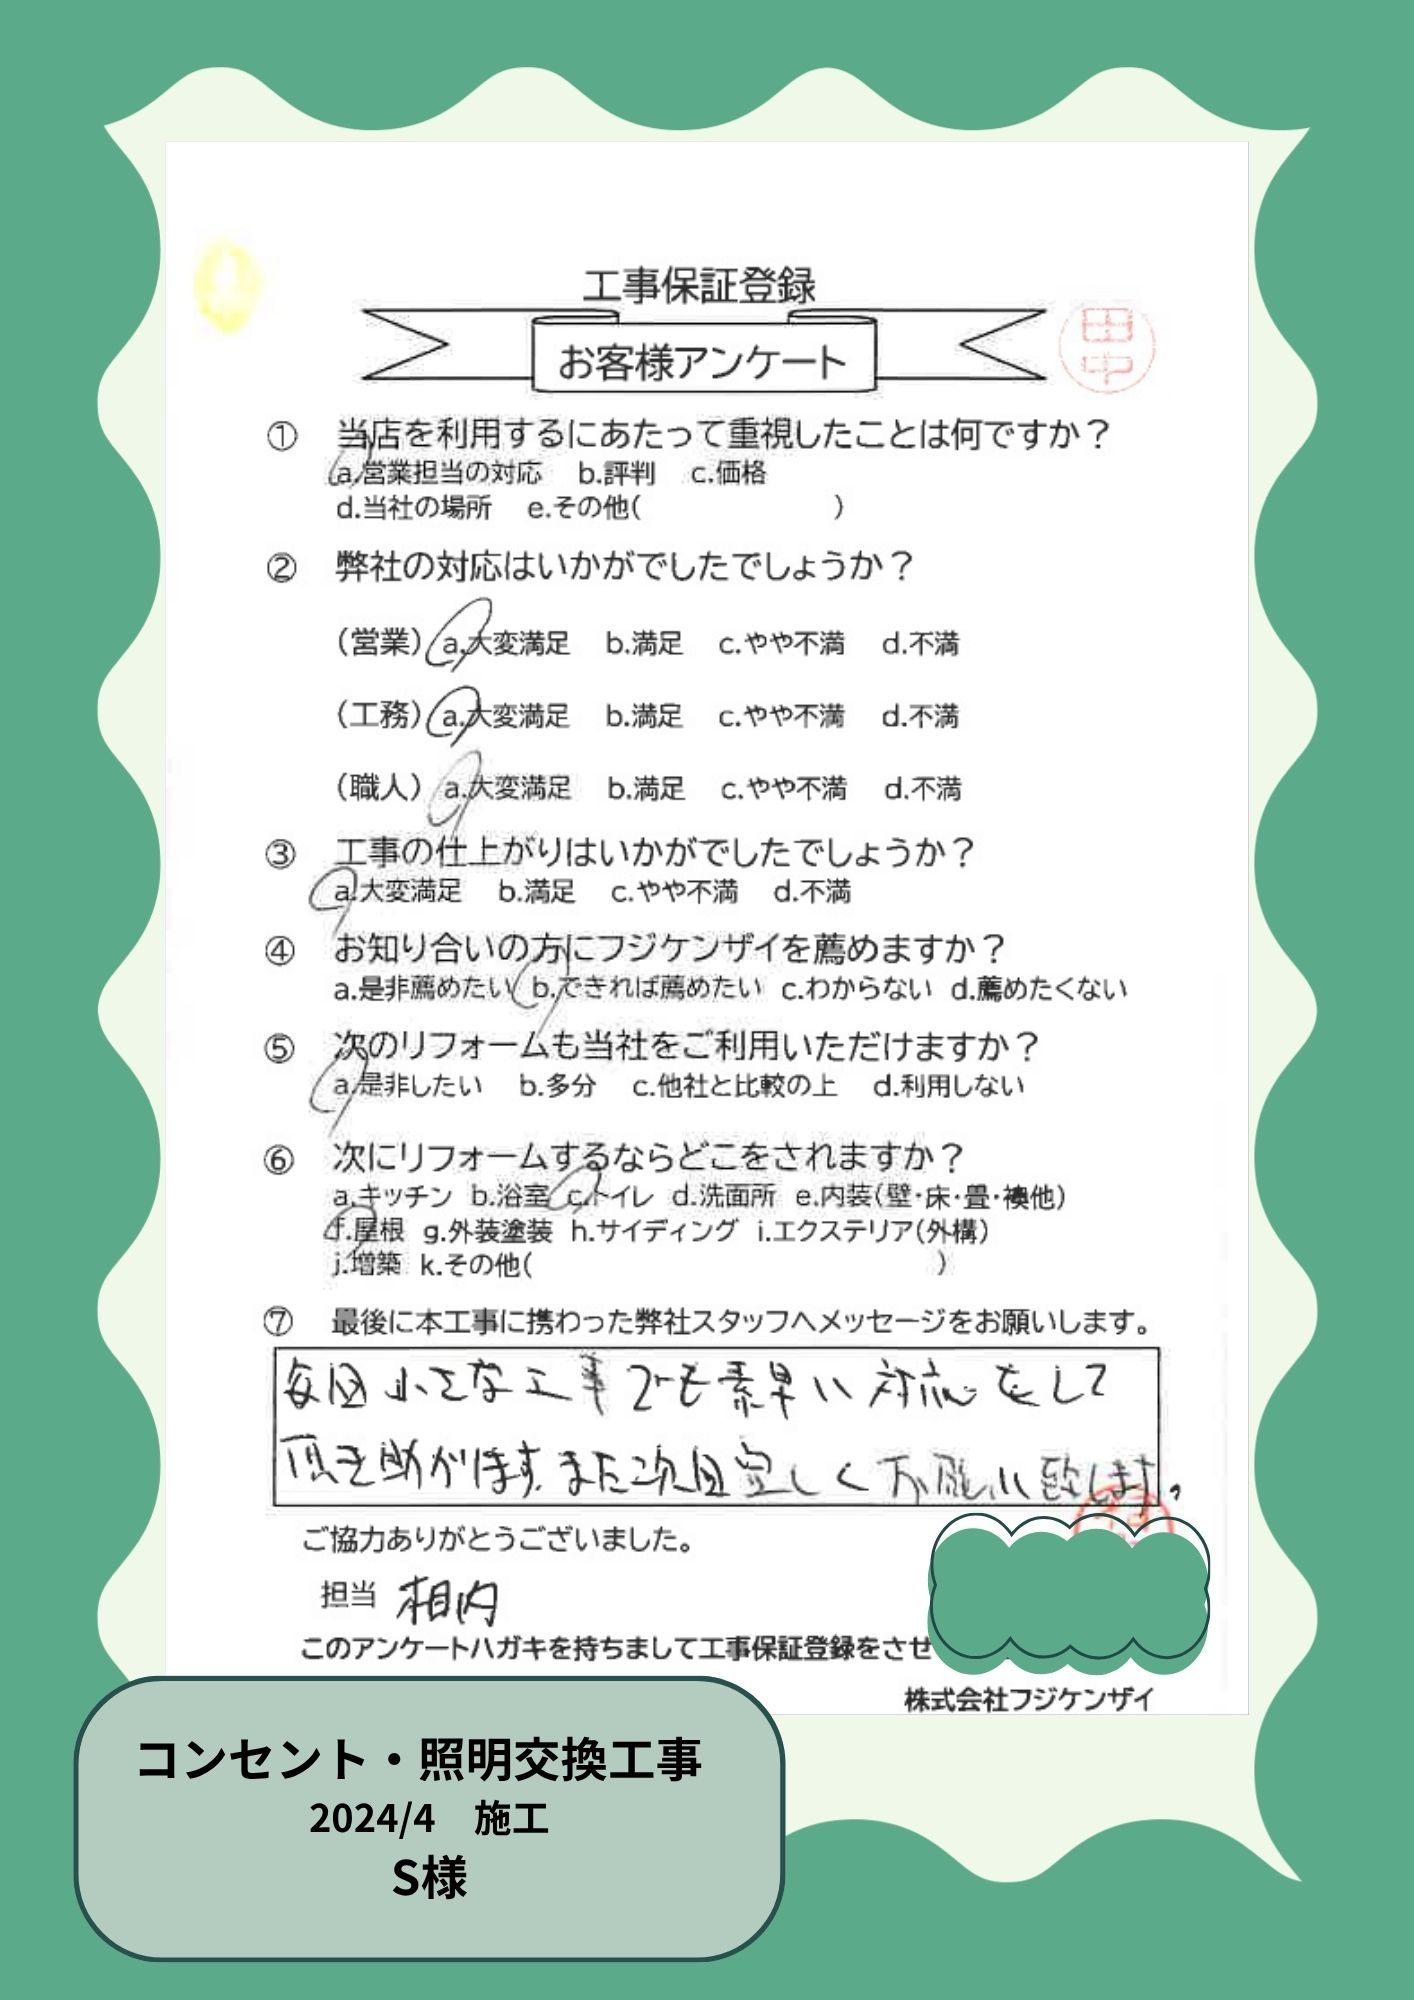 工事保証登録
お客様アンケート
田中
① 当店を利用するにあたって重視したことは何ですか？
a.営業担当の対応 b.評判 c.価格
d.当社の場所 e.その他( )
② 弊社の対応はいかがでしたでしょうか？
(営業) a.大変満足 b.満足 c.やや不満 d.不満
(工務) a.大変満足 b.満足 c.やや不満 d.不満
(職人) a.大変満足 b.満足 c.やや不満 d.不満
③ 工事の仕上がりはいかがでしたでしょうか？
a.大変満足 b.満足 c.やや不満 d.不満
④ お知り合いの方にフジケンザイを薦めますか？
a.是非薦めたい b.できれば薦めたい c.わからない d.薦めたくない
⑤ 次のリフォームも当社をご利用いただけますか？
a.是非したい b.多分 c.他社と比較の上 d.利用しない
⑥ 次にリフォームするならどこをされますか？
a.キッチン b.浴室 c.トイレ d.洗面所 e.内装(壁・床・畳・襖他)
f.屋根 g.外装塗装 h.サイディング i.エクステリア(外構)
j.増築 k.その他( )
⑦ 最後に本工事に携わった弊社スタッフへメッセージをお願いします。
毎回小さな工事でも素早い対応をして
頂き助かります。また次回宜しくお願い致します。
ご協力ありがとうございました。
担当 相内
このアンケートハガキを持ちまして工事保証登録をさせ
株式会社フジケンザイ
コンセント・照明交換工事
2024/4 施工
S様